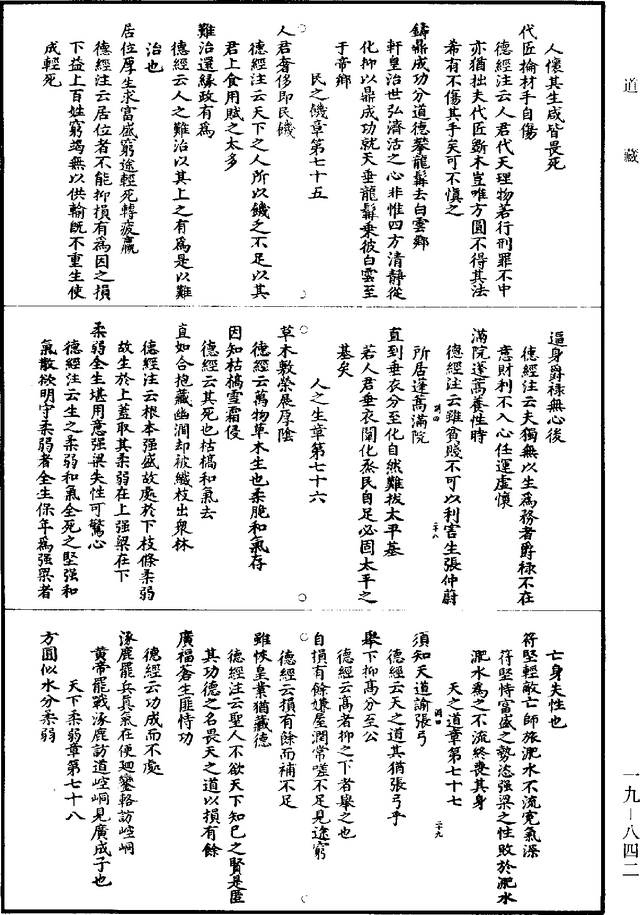 道藏
人懷其生咸皆畏死
代匠掄材手自傷
德經注云人君代天理物若行刑罪不中
亦猶拙夫代匠斲本豈唯方圓不得其法
希有不傷其手矣可不慎之
鑄鼎成功分道德攀龍髯去白雲鄉
軒皇治世弘濟活之心非惟四方清靜從
化抑以鼎成功就天垂龍髯乘彼白雲至
于帝鄉
民之饑章第七十五
人君奢侈即民饑
德經注云天下之人所以饑乏不足以其
君上食用賦之太多
難治還緣政有為
德經云人之難治以其上之有為是以難
治也
居位厚生求富盛窮途輕死轉疲羸
德經注云居位者不能抑損有為因之損
下益上百姓窮竭無以供輸既不重生使
成輕死
逼身爵祿無心後
德經注云夫獨無以生為務者爵祿不在
意財利不入心任運虛懷
滿院蓬蒿養性時
德經注云雖貧賤不可以利害生張仲蔚
所居蓬蒿滿院
直到垂衣分至化自然難拔太平基
若人君垂衣闡化烝民自足必固太平之
基矣
人之生章第七十六
草木敷榮展厚陰
德經云萬物草木生也柔脆和氣存
因知枯槁雪霜侵
德經云其死也枯槁和氣去
直如合抱藏幽澗却被纖枝出眾林
德經注云根本强盛故處於下枝條柔弱
故生於上蓋取其柔弱在上强梁在下
柔弱全生堪用意强梁失性可驚心
德經注云生之柔弱和氣全死之堅强和
氣散欲明守柔弱者全生保年為强梁者
亡身失性也
符堅輕敵亡師旅淝水不流寃氣深
符堅恃富盛之勢恣强梁之性敗於淝水
淝水為之不流終喪其身
天之道章第七十七
須知天道諭張弓
德經云天之道其猶張弓乎
舉下抑高分至公
德經云高者抑之下者舉之也
自損有餘嫌屋潤常嗟不足見途窮
德經云損有餘而補不足
雖恢皇業猶藏德
德經注云聖人不欲天下知已之賢是匿
其功德之名畏天之道以損有餘
廣福蒼生匪恃功
德經云功成而不處
涿鹿罷兵真氣在便廻鑾輅訪崆峒
黃帝罷戰涿鹿訪道崆峒見廣成子也
天下柔弱章第七十八
方圓似水分柔弱
一九—八四二